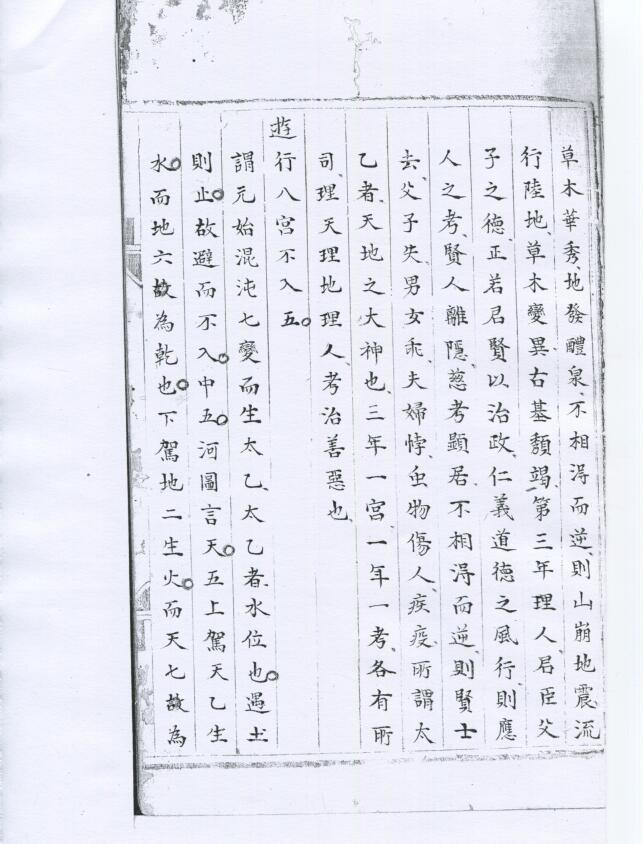 草木華秀、地發醴泉、不相淂而逆、則山崩地震、流
行陸地、草木變異、右基頽竭、第三年理人、君臣父
子之德、正若君賢以治政、仁義道德之風行、則應
人之考、賢人離隱、慈考顕居、不相淂而逆、則賢士
去、父子失、男女乖、夫婦悖、虫物傷人、疾疫、所謂太
乙者、天地之大神也、三年一宮、一年一考、各有所
司、理天理地理人、考治善惡也、
逰行八宮不入五。
謂元始混沌七變而生太乙、太乙者、水位也。遇土
則止。故避而不入。中五。河圖言天。五上駕天乙生
水。而地六故為乾也。下駕地二生火。而天七故為